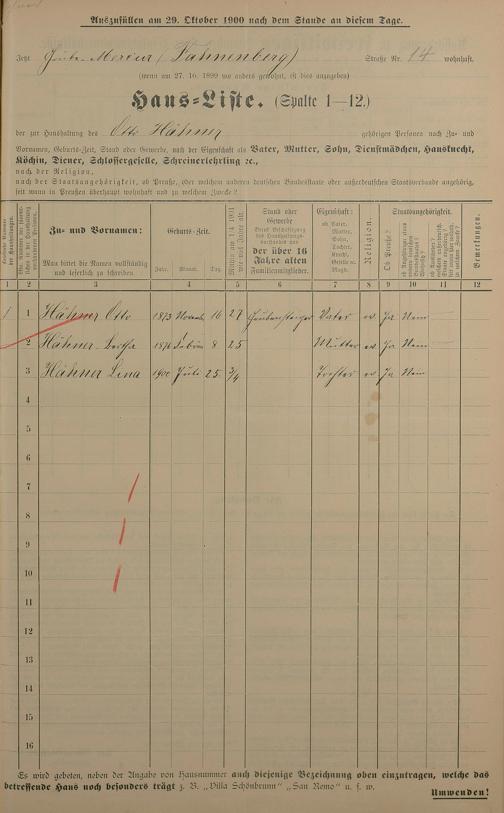 Auszufüllen am 29. Oktober 1900 nach dem Stande an diesem Tage.
Jetzt Grube-Mercur (Fahnenberg) Straße Nr. 14 wohnhaft.
(wenn am 27. 10. 1899 wo anders gewohnt, ist dies anzugeben)
Haus-Liste. (Spalte 1—12.)
der zur Haushaltung des Otto Hähner gehörigen Personen nach Zu- und
Vornamen, Geburts-Zeit, Stand oder Gewerbe, nach der Eigenschaft als Vater, Mutter, Sohn, Dienstmädchen, Hausknecht,
Köchin, Diener, Schlossergeselle, Schreinerlehrling ꝛc.,
nach der Religion,
nach der Staatsangehörigkeit, ob Preuße, (oder welchem anderen deutschen Bundesstaate oder außerdeutschen Staatsverbande angehörig,
seit wann in Preußen überhaupt wohnhaft und zu welchem Zwecke?
Zu- und Vornamen:
Man bittet die Namen vollständig
und leserlich zu schreiben.
Geburts-Zeit.
Jahr. Monat. Tag.
Wann am 1/4 1901
wie viel Jahre alt.
Stand oder
Gewerbe
der über 16
Jahre alten
Familienmitglieder.
Eigenschaft:
ob Vater,
Mutter,
Sohn,
Tochter,
Knecht,
Geselle ꝛc.
Magd.
Religion.
Staatsangehörigkeit.
Ob Preuße?
Bemerkungen.
1 2 3 4 5 6 7 8 9 10 11 12
1 1 Hähner Otto 1873 Novemb. 16 27 Grubensteiger Vater ev Ja Nein
2 Hähner Bertha 1876 Februar 8 25 Mutter ev Ja Nein
3 Hähner Lina 1900 Juli 25 3/4 Tochter ev Ja Nein
4
5
6
7
8
9
10
11
12
13
14
15
16
Es wird gebeten, neben der Angabe von Hausnummer auch diejenige Bezeichnung oben einzutragen, welche das
betreffende Haus noch besonders trägt z. B. „Villa Schönbrunn" „San Remo" u. s. w.
Umwenden!